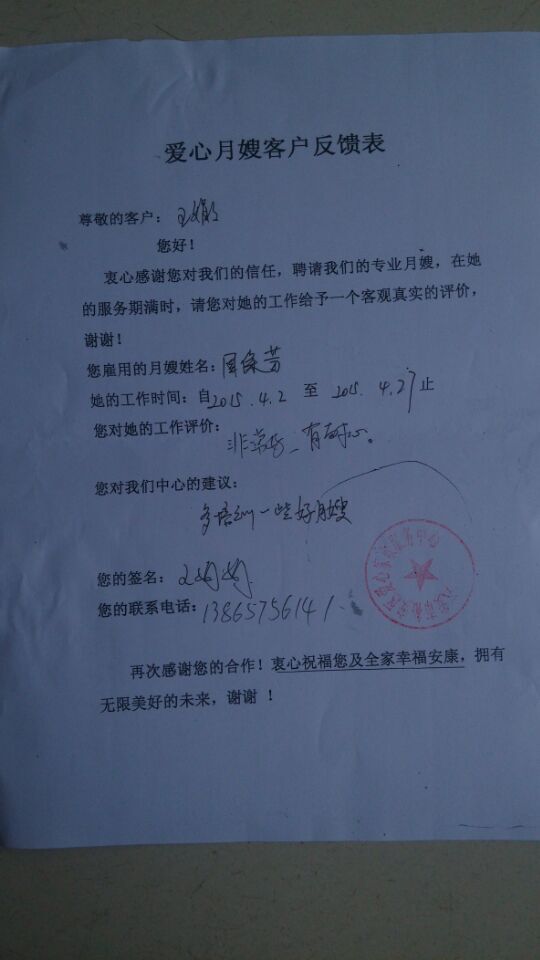 爱心月嫂客户反馈表
尊敬的客户：
您好！
衷心感谢您对我们的信任，聘请我们的专业月嫂，在她
的服务期满时，请您对她的工作给予一个客观真实的评价，
谢谢！
您雇用的月嫂姓名：周侠芳
她的工作时间：自2015.4.2 至 2015.4.27止
您对她的工作评价：
非常好、有耐心。
您对我们中心的建议：
多培训一些好月嫂
您的签名：
您的联系电话：13865756141
再次感谢您的合作！衷心祝福您及全家幸福安康，拥有
无限美好的未来，谢谢！